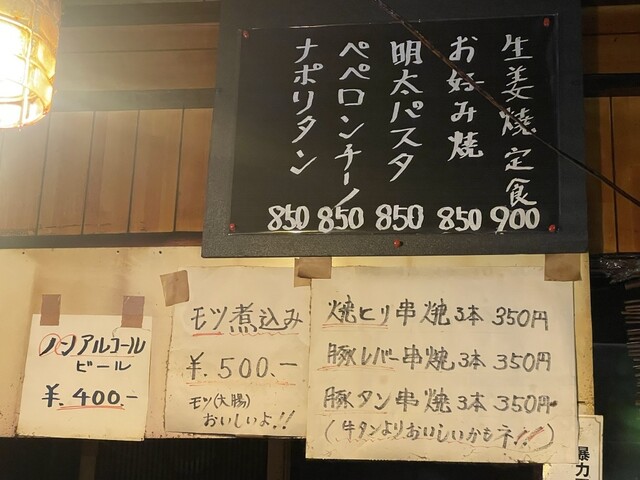 生姜焼定食 900
お好み焼 850
明太パスタ 850
ペペロンチーノ 850
ナポリタン 850
ノンアルコール
ビール
¥.400.-
モツ煮込み
¥.500.-
モツ(大腸)
おいしいよ!!
焼とり串焼3本350円
豚レバー串焼3本350円
豚タン串焼3本350円
(牛タンよりおいしいかもネ!!)
暴力